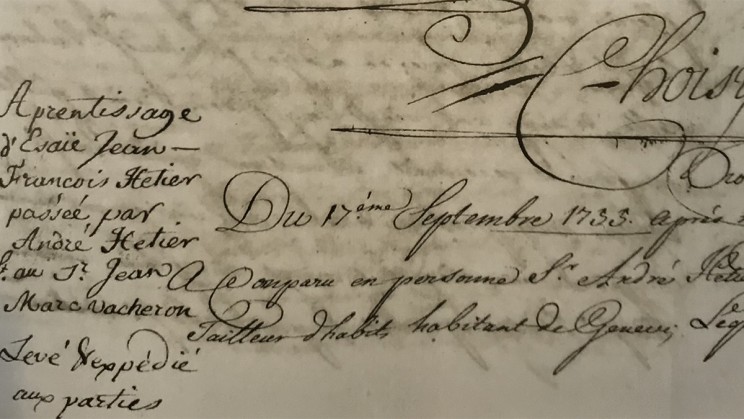 Choisy
Aprentissage
d'Esaïe Jean
François Hetier
passée par
André Hetier
au Sr. Jean
Marc Vacheron
Levé & expédié
aux parties
Du 17éme Septembre 1755. après
A Comparu en personne Sr. André
Tailleur d'habits habitant de Geneve;